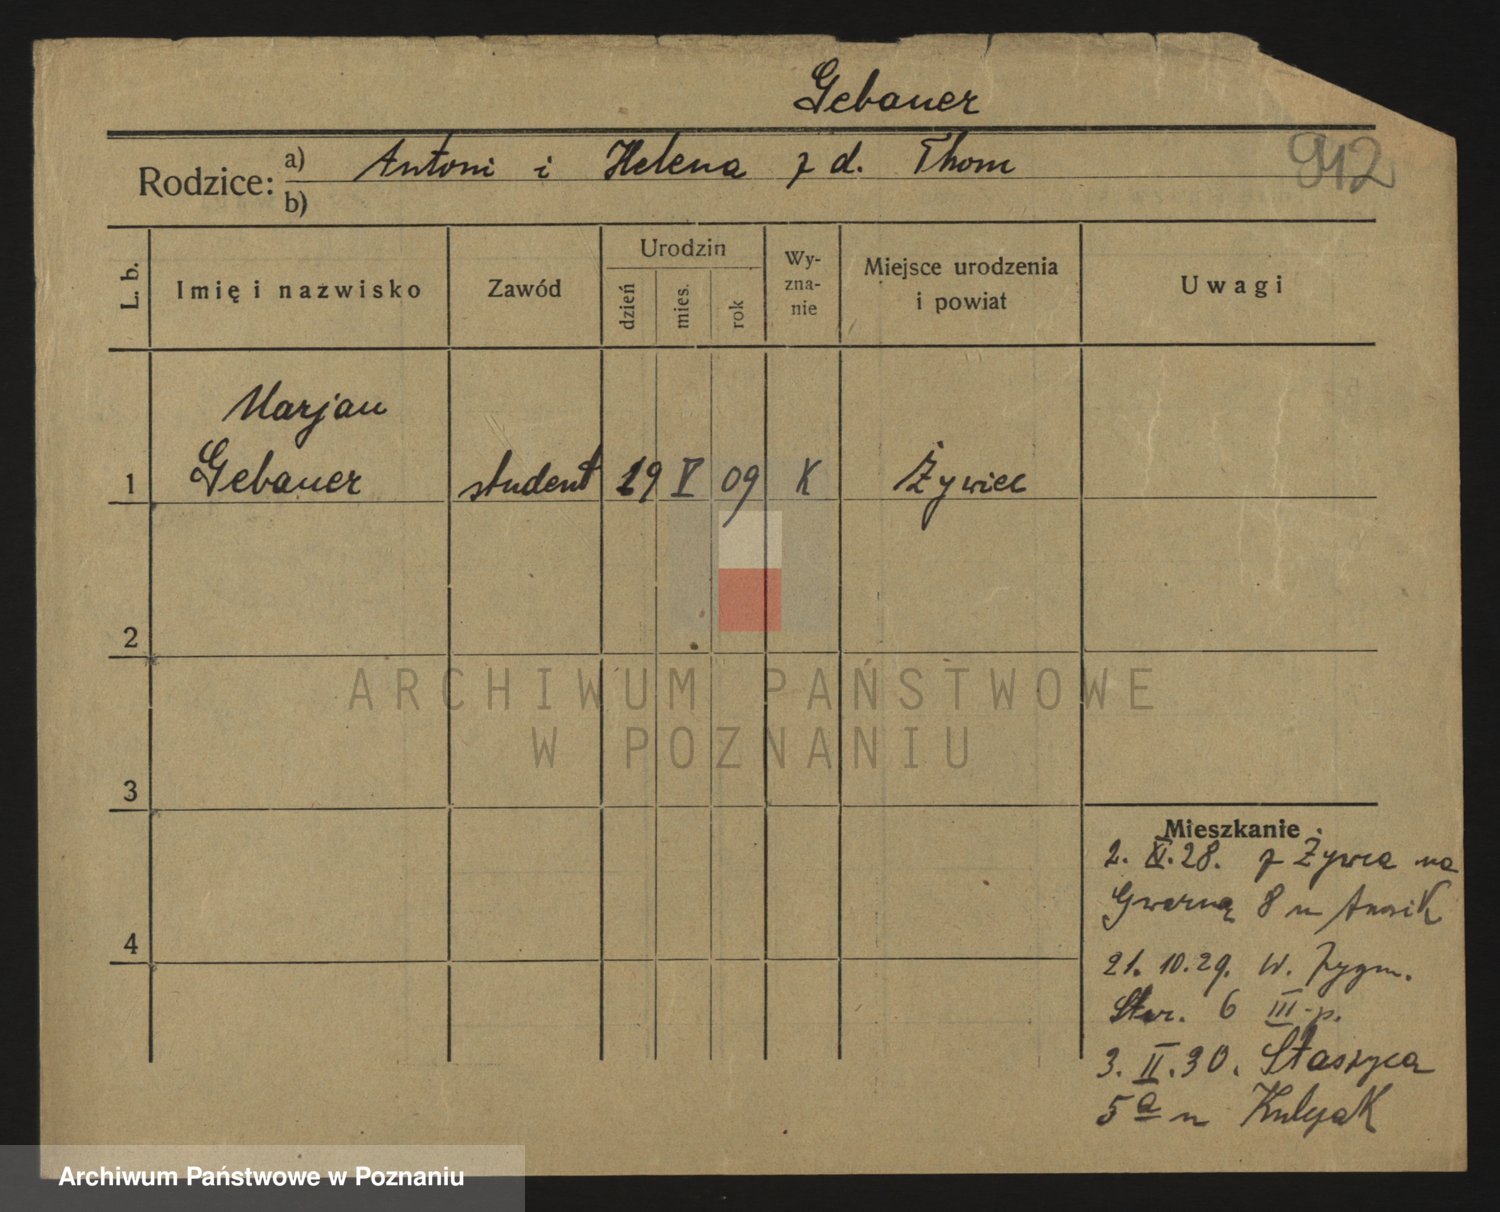 Gebauer
912
Rodzice: a) Antoni i Helena z d. Thom
b)
L. b.
Imię i nazwisko
Zawód
Urodzin
dzień
mies.
rok
Wy-
zna-
nie
Miejsce urodzenia
i powiat
Uwagi
Marjan
1 Gebauer student 19 V 09 K Żywiec
2
3
4
ARCHIWUM PAŃSTWOWE
W POZNANIU
Mieszkanie
2. .28. z Żywca na
Gwarną 8 u
21. 10. 29. W. Zygm.
Star. 6 III p.
3. II. 30. Staszyca
5a u
Archiwum Państwowe w Poznaniu